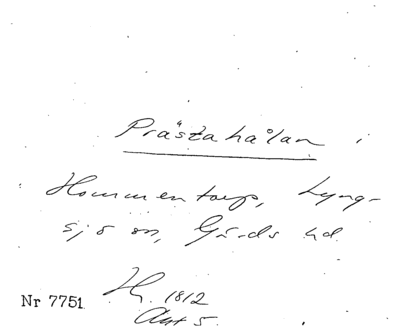 Prästahålan i
Hommentorp, Lyng-
sjö sn, Gärds hd.
Nr 7751
1812
5